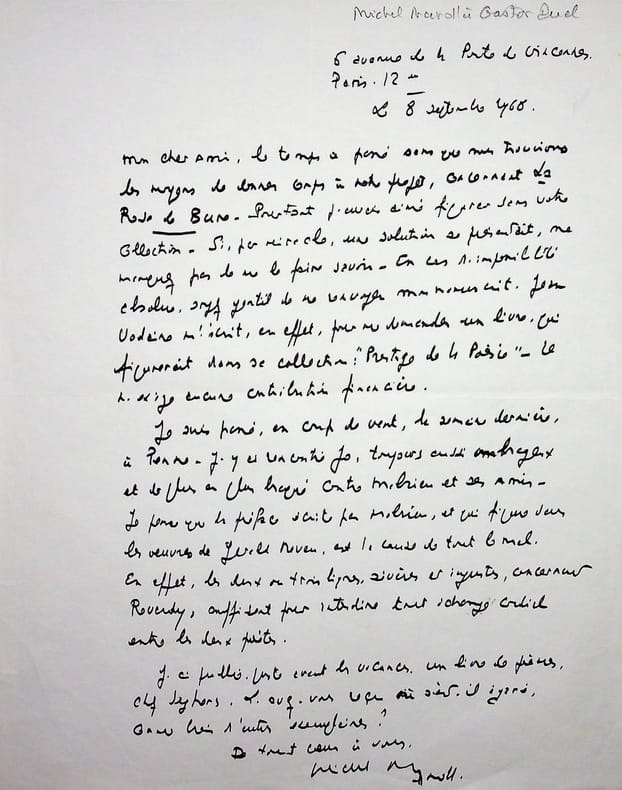 Michel Manoll à Gaston Puel
6 avenue de la Porte de Vincennes.
Paris. 12 em
Le 8 septembre 1966.
Mon cher ami, le temps a passé sans que nous trouvions
les moyens de donner corps à notre projet, concernant La
Rose de Bure. Pourtant j'aurais aimé figurer dans votre
collection. Si, par miracle, une solution se présentait, ne
manquez pas de me le faire savoir. En cas d'impossibilité
absolue, soyez gentil de me renvoyer mon manuscrit. Jean
Vodaine m'écrit, en effet, pour me demander un livre, qui
figurerait dans sa collection: "Prestige de la Poésie" - Il
n'exige aucune contribution financière.
Je suis passé, en coup de vent, la semaine dernière,
à Rennes. J'y ai rencontré Jo, toujours aussi ombrageux
et de plus en plus braqué contre Malrieu et ses amis -
Je pense que la préface écrite par Malrieu, et qui figure dans
les oeuvres de Gérald Neveu, est la cause de tout le mal.
En effet, les deux ou trois lignes, sévères et injustes, concernant
Reverdy, suffisent pour interdire tout échange cordial
entre les deux poètes.
J'ai publié, juste avant les vacances, un livre de poèmes,
chez Seghers. L'avez-vous reçu ou s'est-il égaré,
comme bien d'autres exemplaires?
De tout coeur à vous.
Michel Manoll.